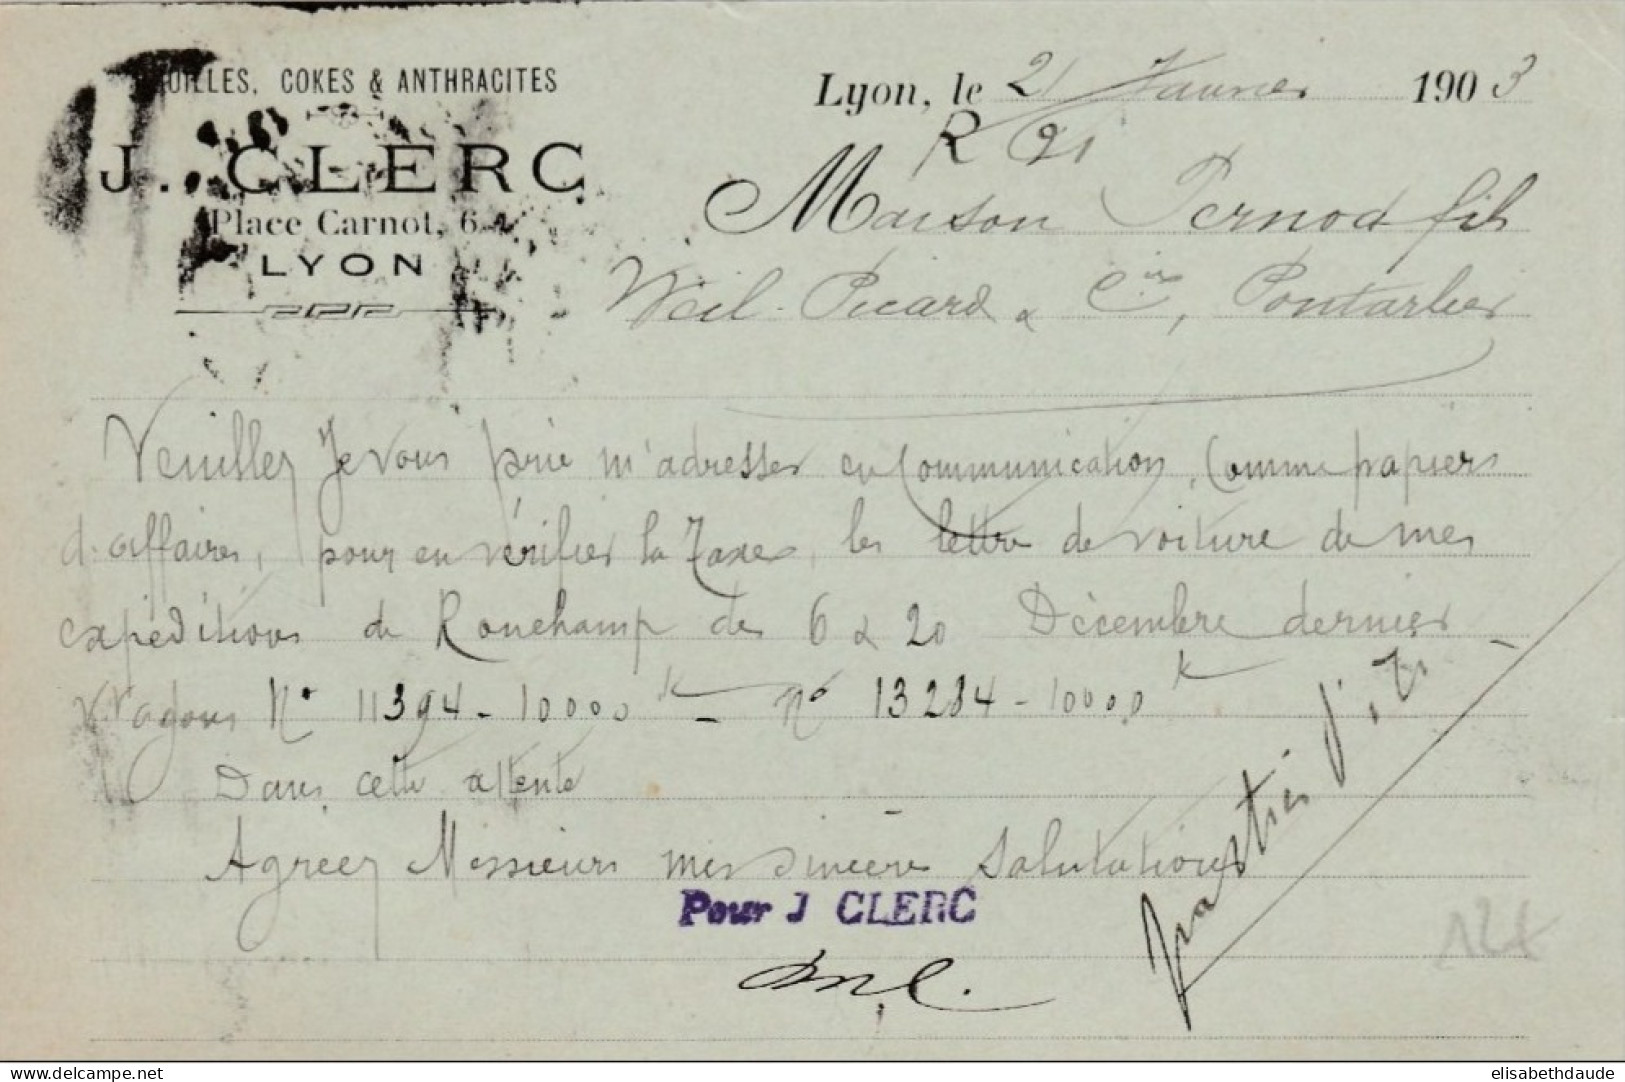 OUILLES, COKES & ANTHRACITES
J. CLERC
Place Carnot, 6
LYON
Lyon, le 21 Janvier 1903
R 21
Maison Pernod fils
Weil-Picard & Cie, Pontarlier
Veuillez je vous prie m'adresser en communication, comme papiers
d'affaires, pour en vérifier la taxe, les lettre de voiture de mes
expéditions de Ronchamp des 6 & 20 Décembre dernier
Wagons No 11394 - 10000 k - No 13284 - 10000 k
Dans cette attente
Agreez Messieurs mes sincères Salutations
Pour J CLERC
www.delcampe.net
elisabethdaude